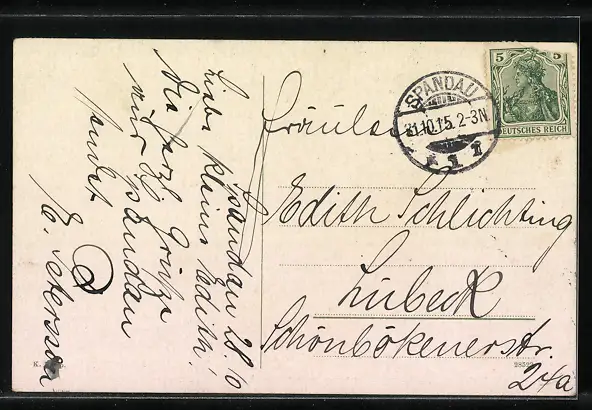 Spandau 28/10
Liebe kleine Edith!
Die herzl. Grüße
aus Spandau
sendet
E. Petersson
5 5
DEUTSCHES REICH
SPANDAU
31.10.15. 2-3N.
1
Fräulein
Edith Schlichting
Lübeck
Schönbökenerstr.
24a